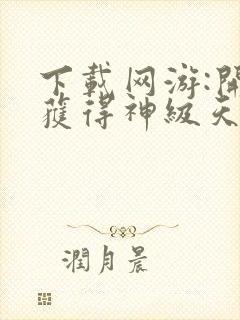 下載网游:開
獲得神級天
潤月晨